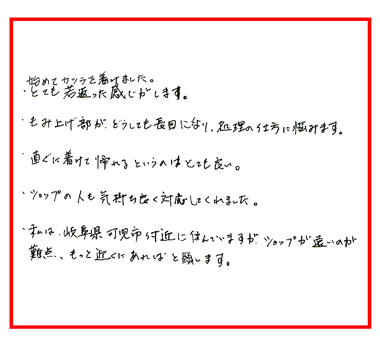 始めてカツラを着けました。
・とても若返った感じがします。
・もみ上げ部が、どうしても長目になり、処理の仕方に悩みます。
・直ぐに着けて帰れるというのはとても良い。
・ショップの人も気持ち良く対応してくれました。
・私は、岐阜県可児市付近に住んでいますが、ショップが遠いのが
難点、もっと近くにあればと願います。